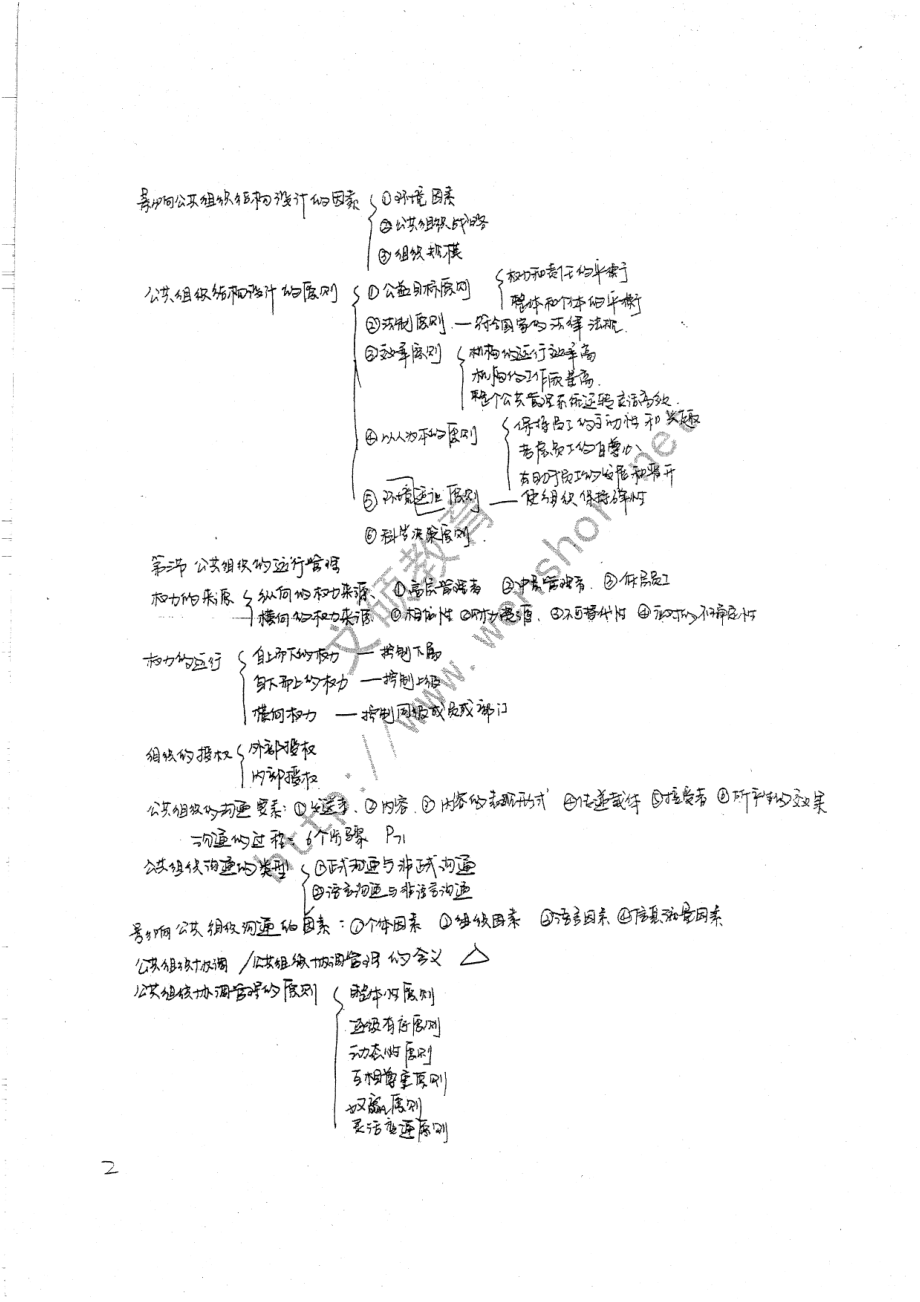 影响公共组织结构设计的因素 ①环境因素
②公共组织战略
③组织规模
公共组织结构设计的原则 ①公益目标原则 权力和责任的平衡
整体和个体的平衡
②法制原则 — 符合国家的法律法规.
③效率原则 机构的运行效率高
机构的工作质量高.
整个公共管理系统运转灵活高效.
④以人为本的原则 保持员工的主动性和兴趣
考虑员工的自尊心
有助于员工的发展和提升
⑤环境适应原则 — 使组织保持弹性
⑥科学决策原则.
第三节 公共组织的运行管理
权力的来源 纵向的权力来源、①高层管理者 ②中层管理者. ③低层员工
横向的权力来源 ①相依性 ②财力资源 ③不可替代性 ④应对的不确定性
权力的运行 自上而下的权力 — 控制下属
自下而上的权力 — 控制上级
横向权力 — 控制同级成员或部门
组织的授权 外部授权
内部授权
公共组织的沟通要素: ①发送者、②内容. ③内容的表现形式 ④传递载体 ⑤接受者 ⑥所产生的效果
沟通的过程: 6个步骤 P71
公共组织沟通的类型 ①正式沟通与非正式沟通
②语言沟通与非语言沟通
影响公共组织沟通的因素: ①个体因素 ②组织因素 ③语言因素 ④信息流量因素
公共组织协调 / 公共组织协调管理的含义 △
公共组织协调管理的原则 整体性原则
逐级有序原则
动态性原则
互相尊重原则
双赢原则
灵活变通原则
2
文硕教育
http://www.wenshuo.net